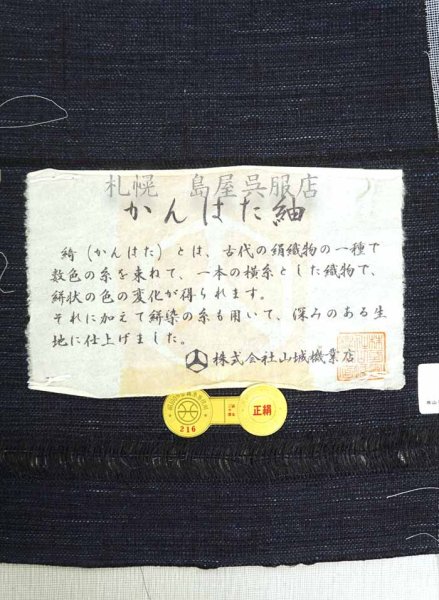 札幌 島屋呉服店
かんはた紬
綺（かんはた）とは、古代の絹織物の一種で
数色の糸を束ねて、一本の横糸とした織物で、
絣状の色の変化が得られます。
それに加えて絣染の糸も用いて、深みのある生
地に仕上げました。
株式会社山城機業店
216
正絹